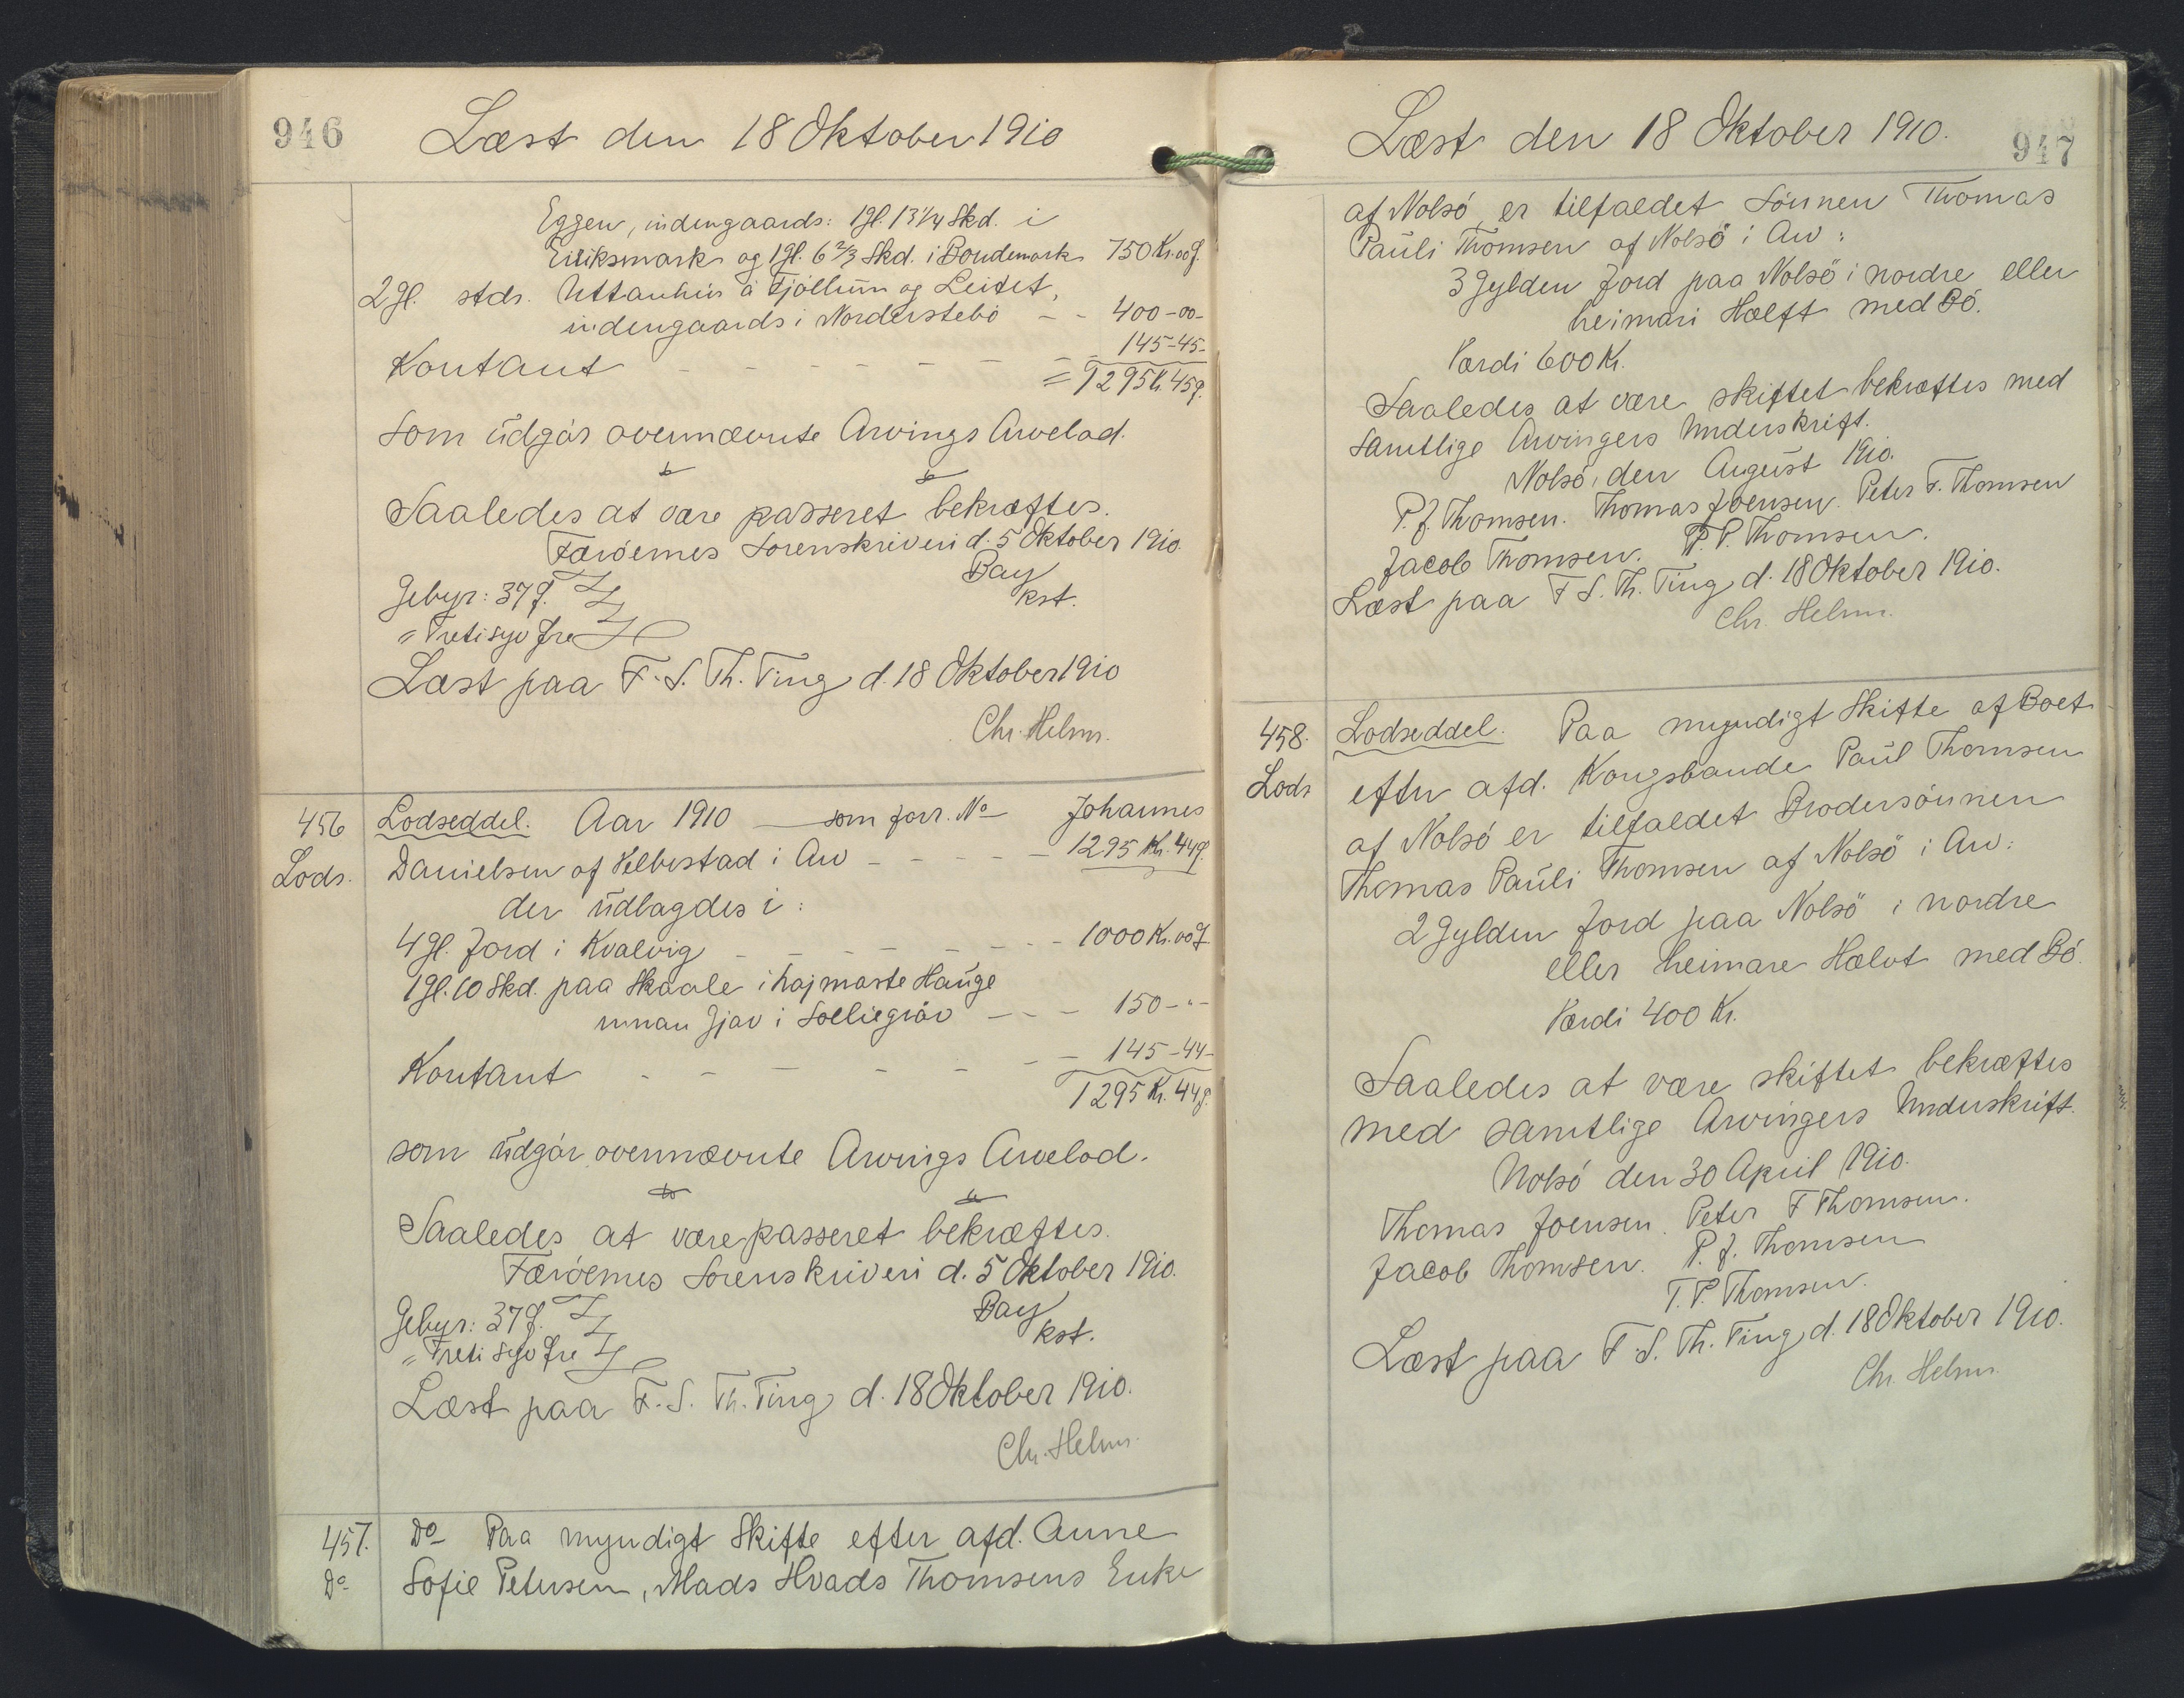 946
Læst den 18 Oktober 1910
Eggen, indengaards: 1 gl. 13 1/4 Skd. i
Eiriksmark og 1 gl. 6 2/3 Skd. i Bondemark 750 Kr. 00 Ø.
2 gl. stdr. Uttanhús á Fjøllum og Leitet,
indengaards i Norderstebö - - 400 - 00 -
Kontant - - - - - - 145 - 45 -
= 1295 Kr. 45 Ø.
som údgár ovennævnte Arvings Arvelod.
Saaledes at være passeret bekræftes.
Færöernes Sorenskriveri d. 5 Oktober 1910.
Gebyr: 37 Ø. Bay
= Tretisyv Øre kst.
Læst paa F. S. Th. Ting d. 18 Oktober 1910
Chr. Helms.
456 Lodseddel. Aar 1910 — som forr. No — Johannes
Lods. Danielsen af Velbestad i Arv - - - - - 1295 Kr. 44 Ø.
der údlagdes i:
4 gl. Jord i Kvalvig - - - - - - 1000 Kr. 00 Ø
1 gl. 10 Skd. paa Skaale i hajmaste Hauge
innan Gjav i - - - 150 - " -
Kontant - - - - - - - 145 - 44 -
1295 Kr. 44 Ø.
som údgár ovennævnte Arvings Arvelod.
Saaledes at være passeret bekræftes.
Færöernes Sorenskriveri d. 5 Oktober 1910.
Gebyr: 37 Ø. Bay
= Tretisyv Øre kst.
Læst paa F. S. Th. Ting d. 18 Oktober 1910.
Chr. Helms.
457. Do Paa myndigt Skifte efter afd. Anne
Do Sofie Petersen, Mads Hvads Thomsens Enke
Læst den 18 Oktober 1910. 947
af Nolsö, er tilfaldet Sönnen Thomas
Paúli Thomsen af Nolsö i Arv:
3 Gylden Jord paa Nolsö i nordre eller
heimari Hælft med Bö.
Værdi 600 Kr.
Saaledes at være skiftet bekræftes med
samtlige Arvingers Underskrift.
Nolsö, den August 1910.
P. J. Thomsen. Thomas Joensen. Peter F. Thomsen
Jacob Thomsen. T. P. Thomsen.
Læst paa F S. Th. Ting d. 18 Oktober 1910.
Chr. Helms.
458. Lodseddel. Paa myndigt Skifte af Boet
Lods efter afd. Kongsbonde Paúl Thomsen
af Nolsö er tilfaldet Brodersönnen
Thomas Paúli Thomsen af Nolsö i Arv:
2 Gylden Jord paa Nolsö i nordre
eller heimare Hælvt med Bö.
Værdi 400 Kr.
Saaledes at være skiftet bekræftes
med samtlige Arvingers Underskrift.
Nolsö den 30 April 1910.
Thomas Joensen. Peter F Thomsen.
Jacob Thomsen. P. J. Thomsen
T. P. Thomsen.
Læst paa F. S. Th. Ting d. 18 Oktober 1910.
Chr. Helms.